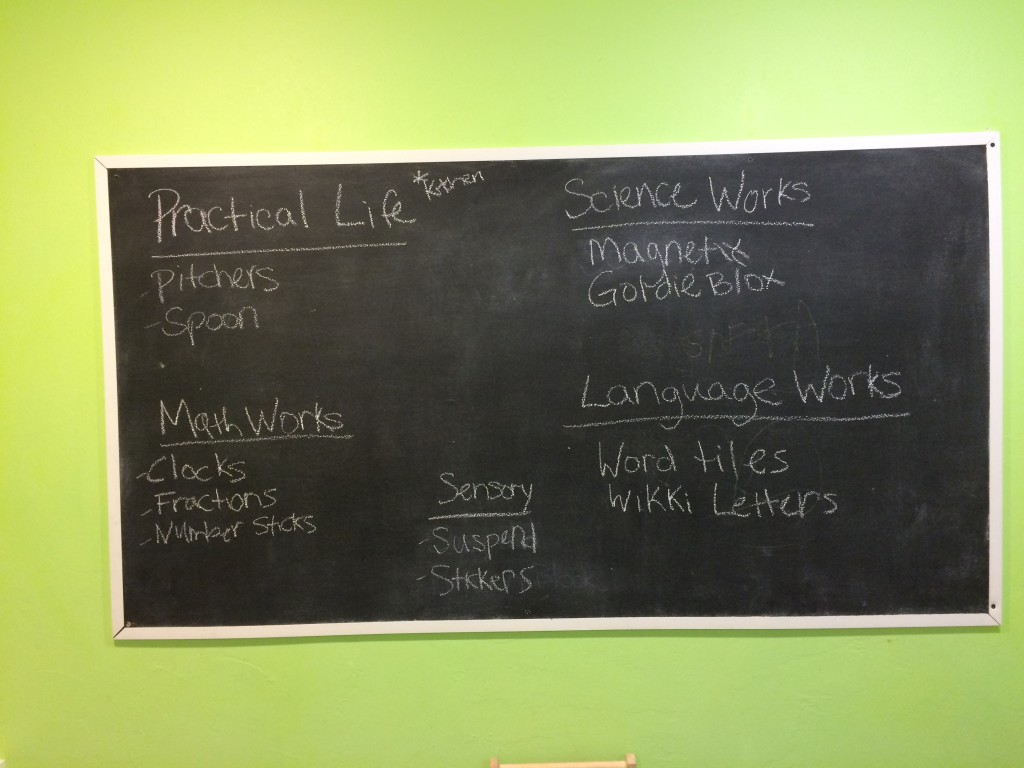 Practical Life
*Kitchen
- Pitchers
- Spoon
Math Works
- Clocks
- Fractions
- Number Sticks
Sensory
- Suspend
- Stickers
Science Works
Magnetix
Goldie Blox
Language Works
Word tiles
Wikki Letters